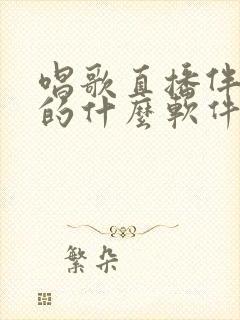 唱歌直播伴
的什麼軟件
繁朵